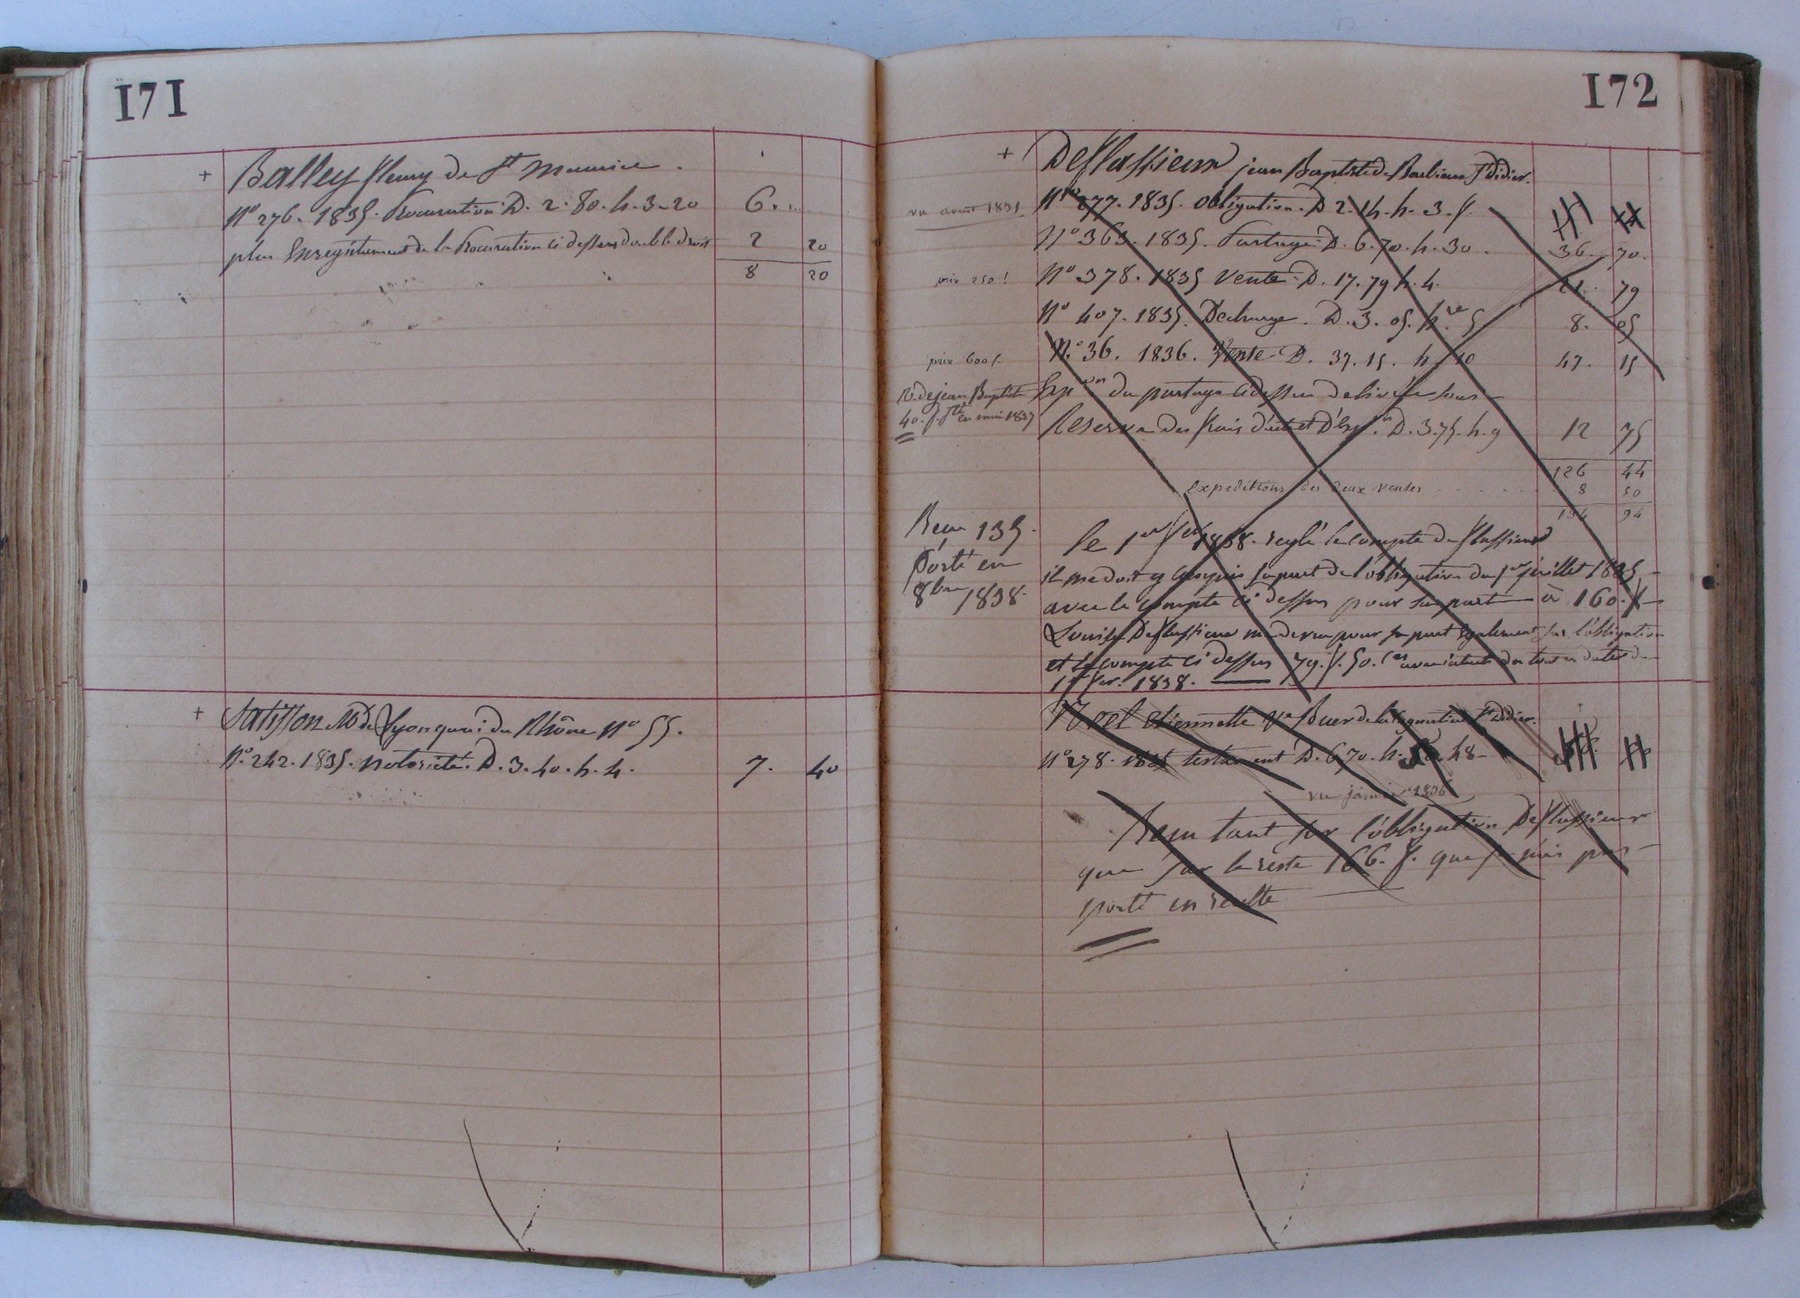 171
+ Balley fleury de St Maurice.
N° 276. 1835. Procuration. D. 2. 80. h. 3. 20 6.
plus Enregistrement de la Procuration ci dessus double droit 2 20
8 20
+ Satisson Md de Lyon quai du Rhône N° 55.
N° 242. 1835. notoriété. D. 3. 40. h. 4. 7. 40
172
+ Deflassieux jean Baptiste de St Didier.
vu aout 1835 N° 277. 1835. obligation. D. 2. h. 3.
N° 363. 1835. Partage. D. 6. 70. h. 30. 36. 70.
prix 250 f N° 378. 1835 Vente. D. 17. 79 h. 4. 21. 79
N° 407. 1835. Decharge. D. 3. 05. h. 5 8. 05
prix 600 f. N° 36. 1836. Vente D. 37. 15. h. 10 47. 15
R. de jean Baptiste
40. f. en mai 1837
Exp on du partage ci dessus delivrée sous
Reserve des frais D. 3. 75. h. 9 12 75
126 44
Expeditions des deux ventes 8 50
134 94
Recu 135.
Porté en
8bre 1838.
le 1er 1838. reglé le compte deflassieux
il me doit y compris sa part de l'obligation du 1er juillet 1835
avec le compte ci dessus pour sa part à 160. f
Louise Deflassieux me devra pour sa part egalement sur l'obligation
et le compte ci dessus 79. f. 50. avec interets du tout à dater du
1er 1838.
etiennette Ve de St Didier.
N° 278. 1835 testament D. 6. 70. h. 48
vu janvier 1836
Recu tant sur l'obligation Deflassieux
que sur le reste 166. f. que je
porté en recette